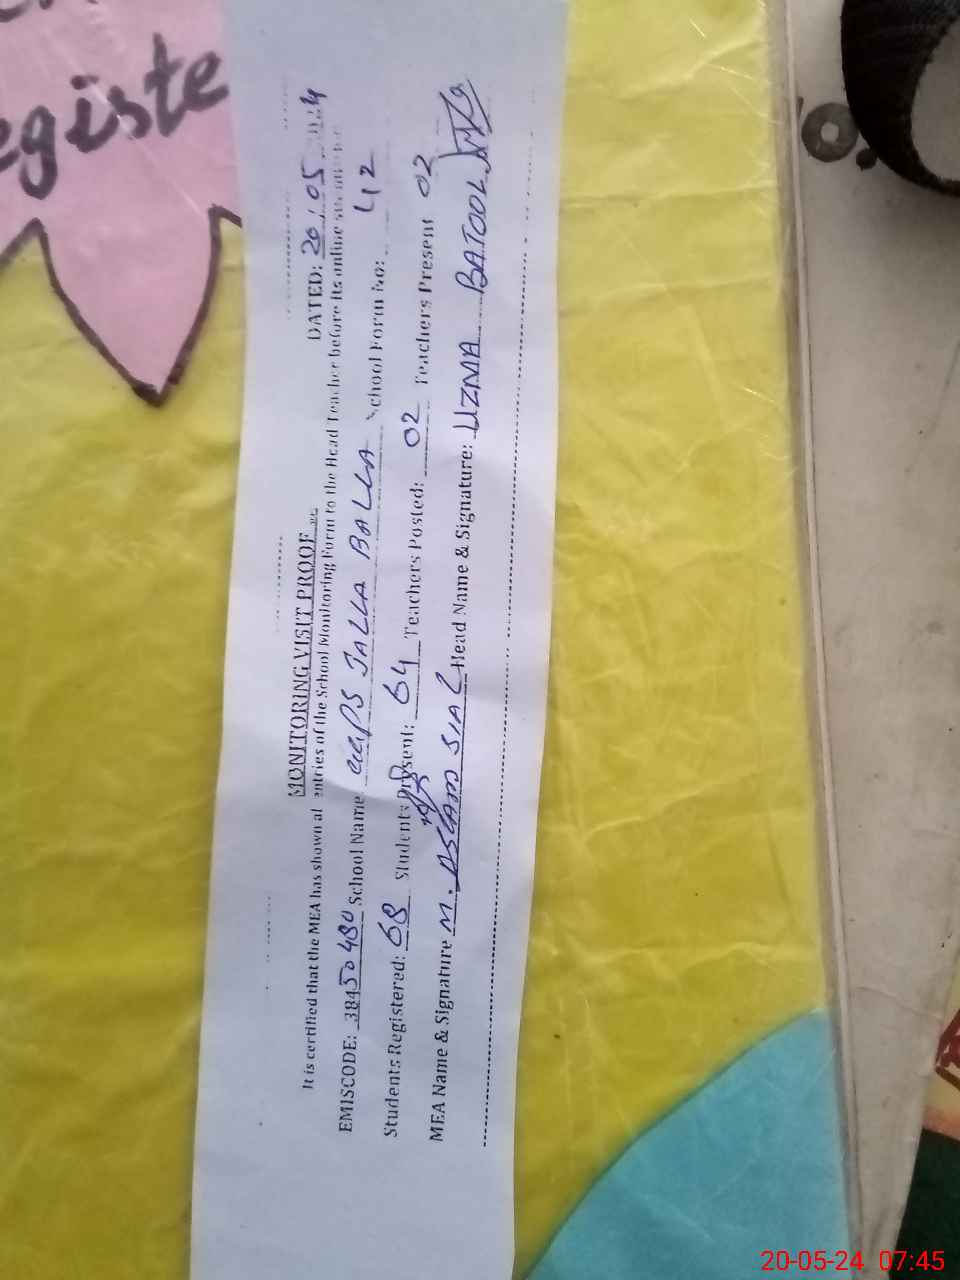 egiste
MONITORING VISIT PROOF
DATED: 20.05.2024
It is certified that the MEA has shown al entries of the School Monitoring Form to the Head Teacher before its online
EMISCODE: 38450480 School Name GGPS JALLA BALLA School Form No: 42
Students Registered: 68 Students Present: 64 Teachers Posted: 02 Teachers Present 02
MEA Name & Signature M. ASLAM SIAL Head Name & Signature: UZMA BATOOL
20-05-24 07:45